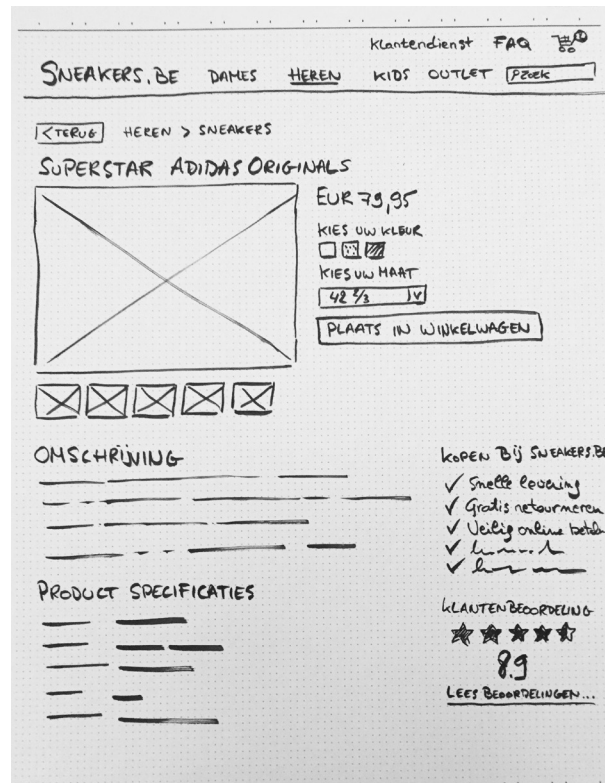 Klantendienst FAQ
SNEAKERS.BE DAMES HEREN KIDS OUTLET
< TERUG HEREN > SNEAKERS
SUPERSTAR ADIDAS ORIGINALS
EUR 79,95
KIES UW KLEUR
KIES UW MAAT
42 2/3
PLAATS IN WINKELWAGEN
OMSCHRIJVING
KOPEN Bij SNEAKERS.BE
✓ Snelle levering
✓ Gratis retourneren
✓ Veilig online betalen
PRODUCT SPECIFICATIES
KLANTENBEOORDELING
8.9
LEES BEOORDELINGEN...